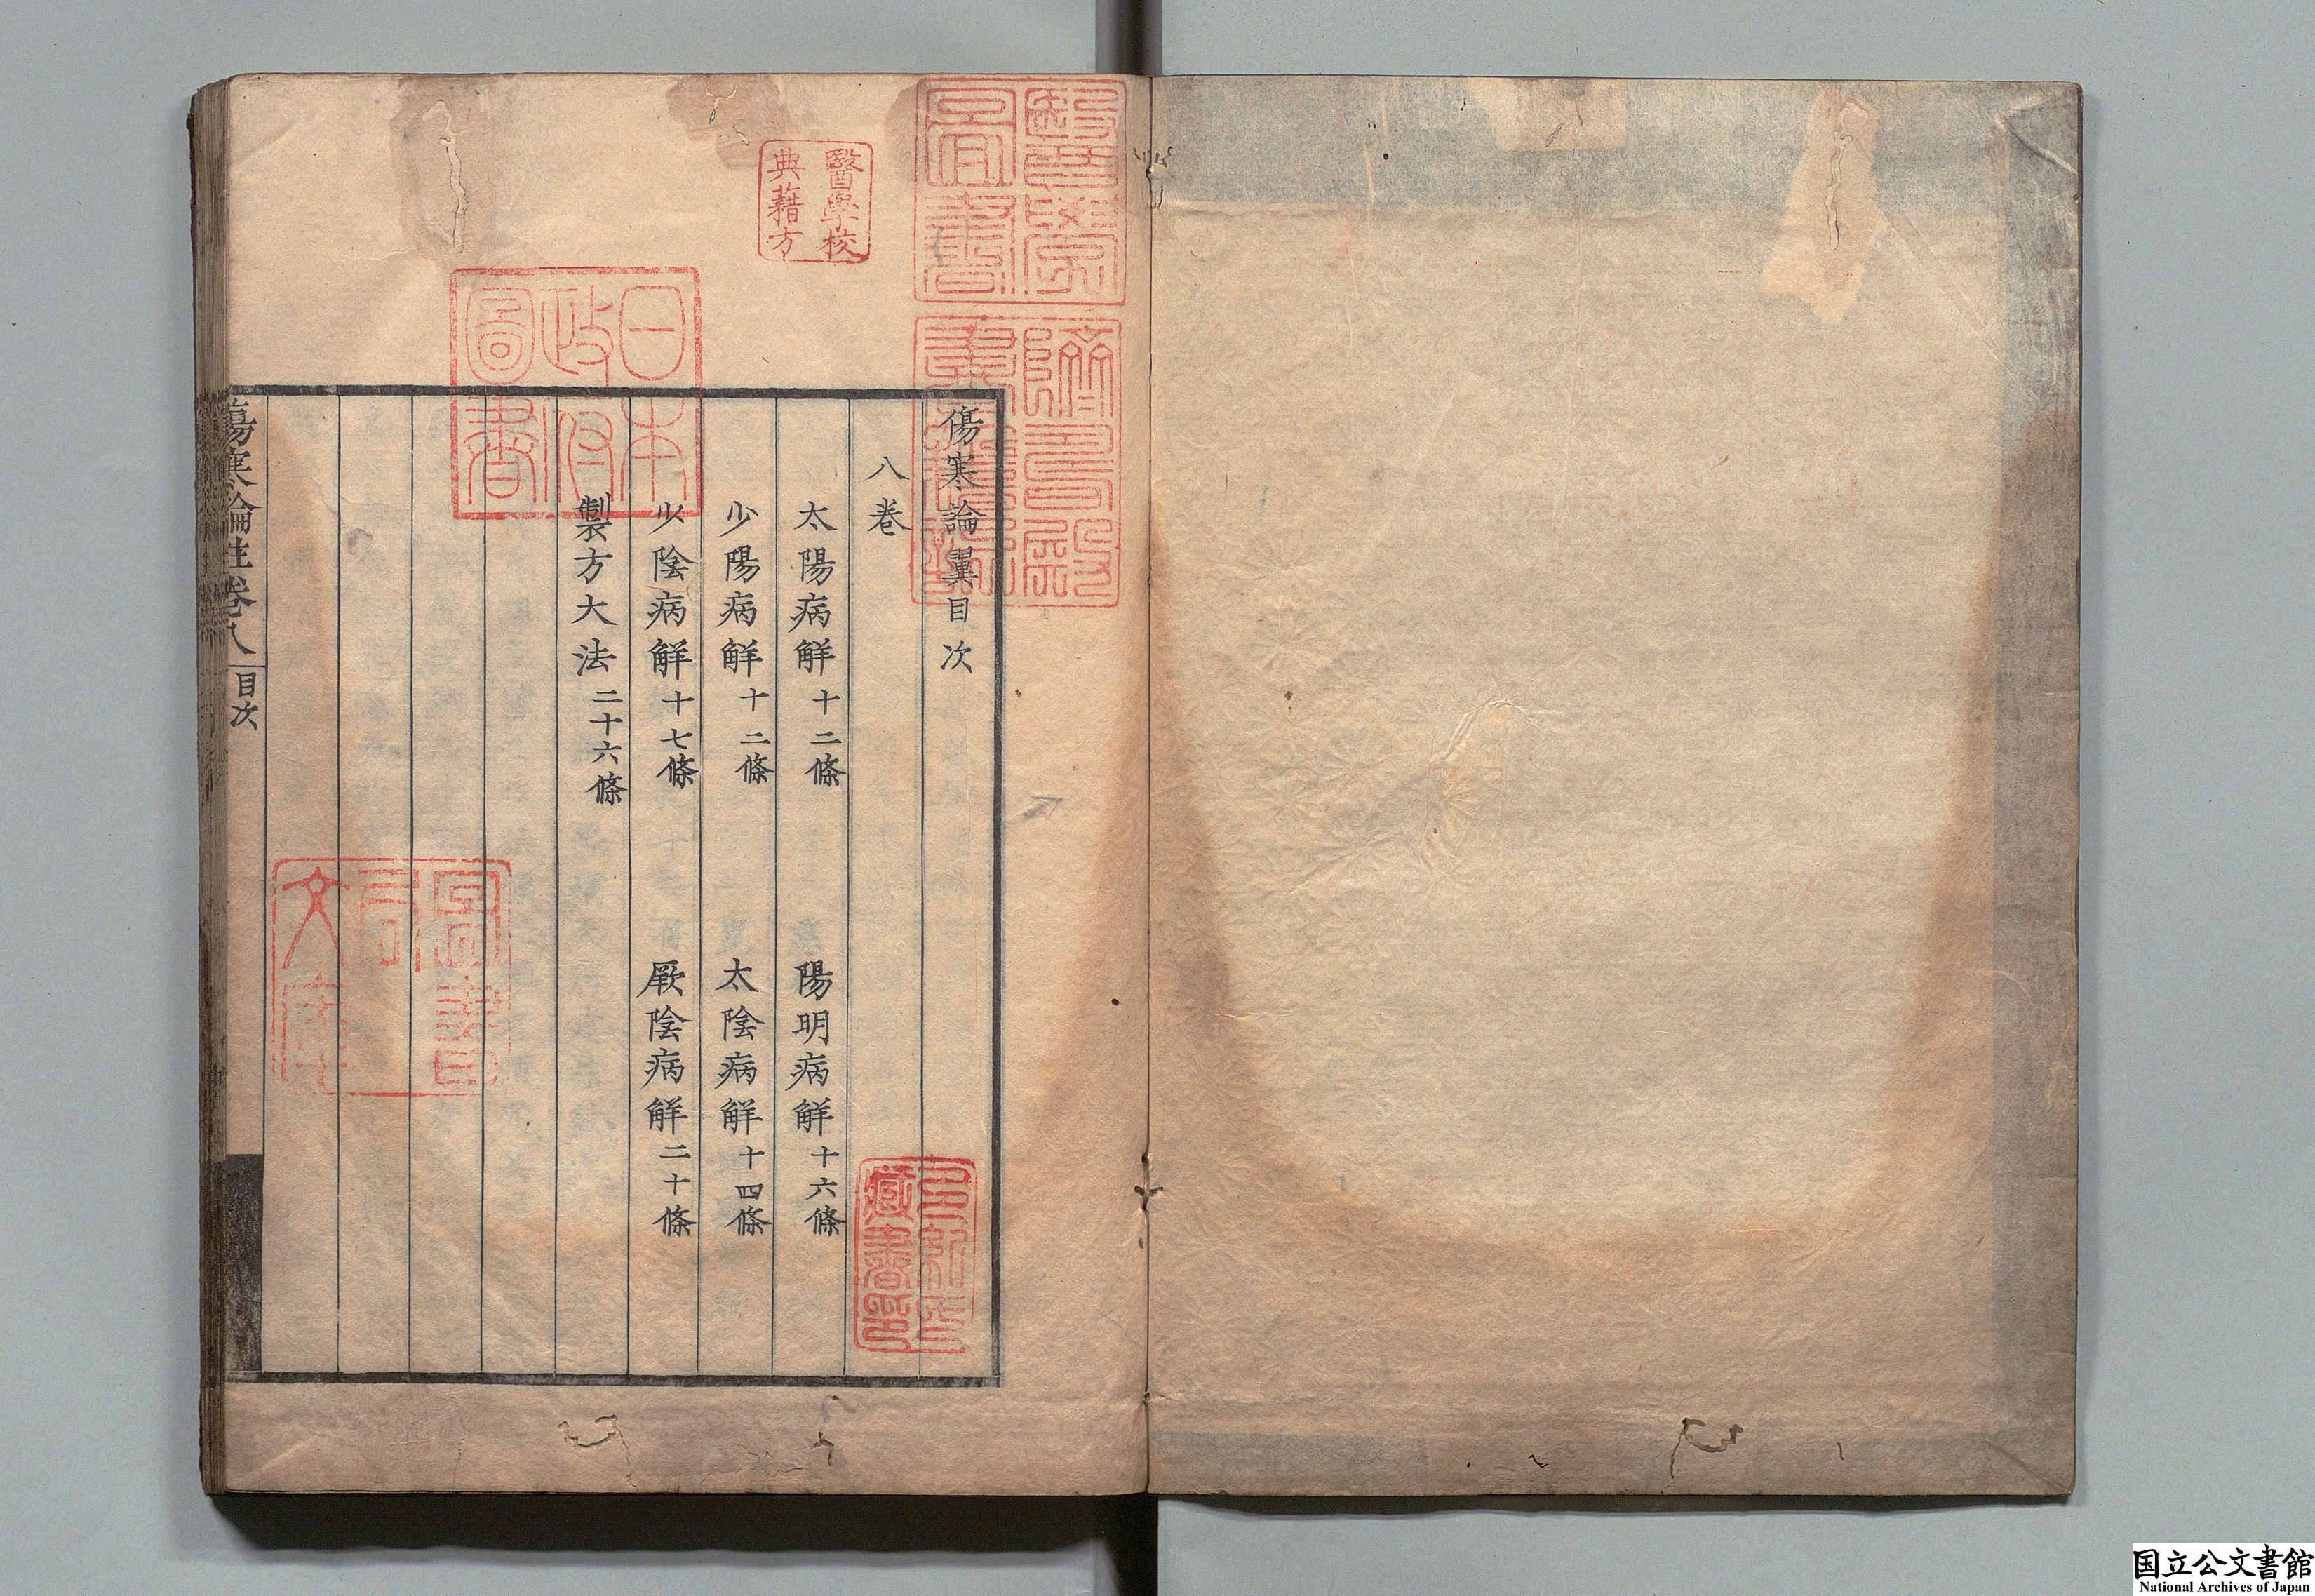 傷寒論翼目次
八卷
太陽病解十二條 陽明病解十六條
少陽病解十二條 太陰病解十四條
少陰病解十七條 厥陰病解二十條
製方大法二十六條
傷寒論註卷八 目次
醫學校
典藉方
日本
政府
圖書
醫學
圖書
躋壽殿
書籍
藏書
國立公文書館
National Archives of Japan